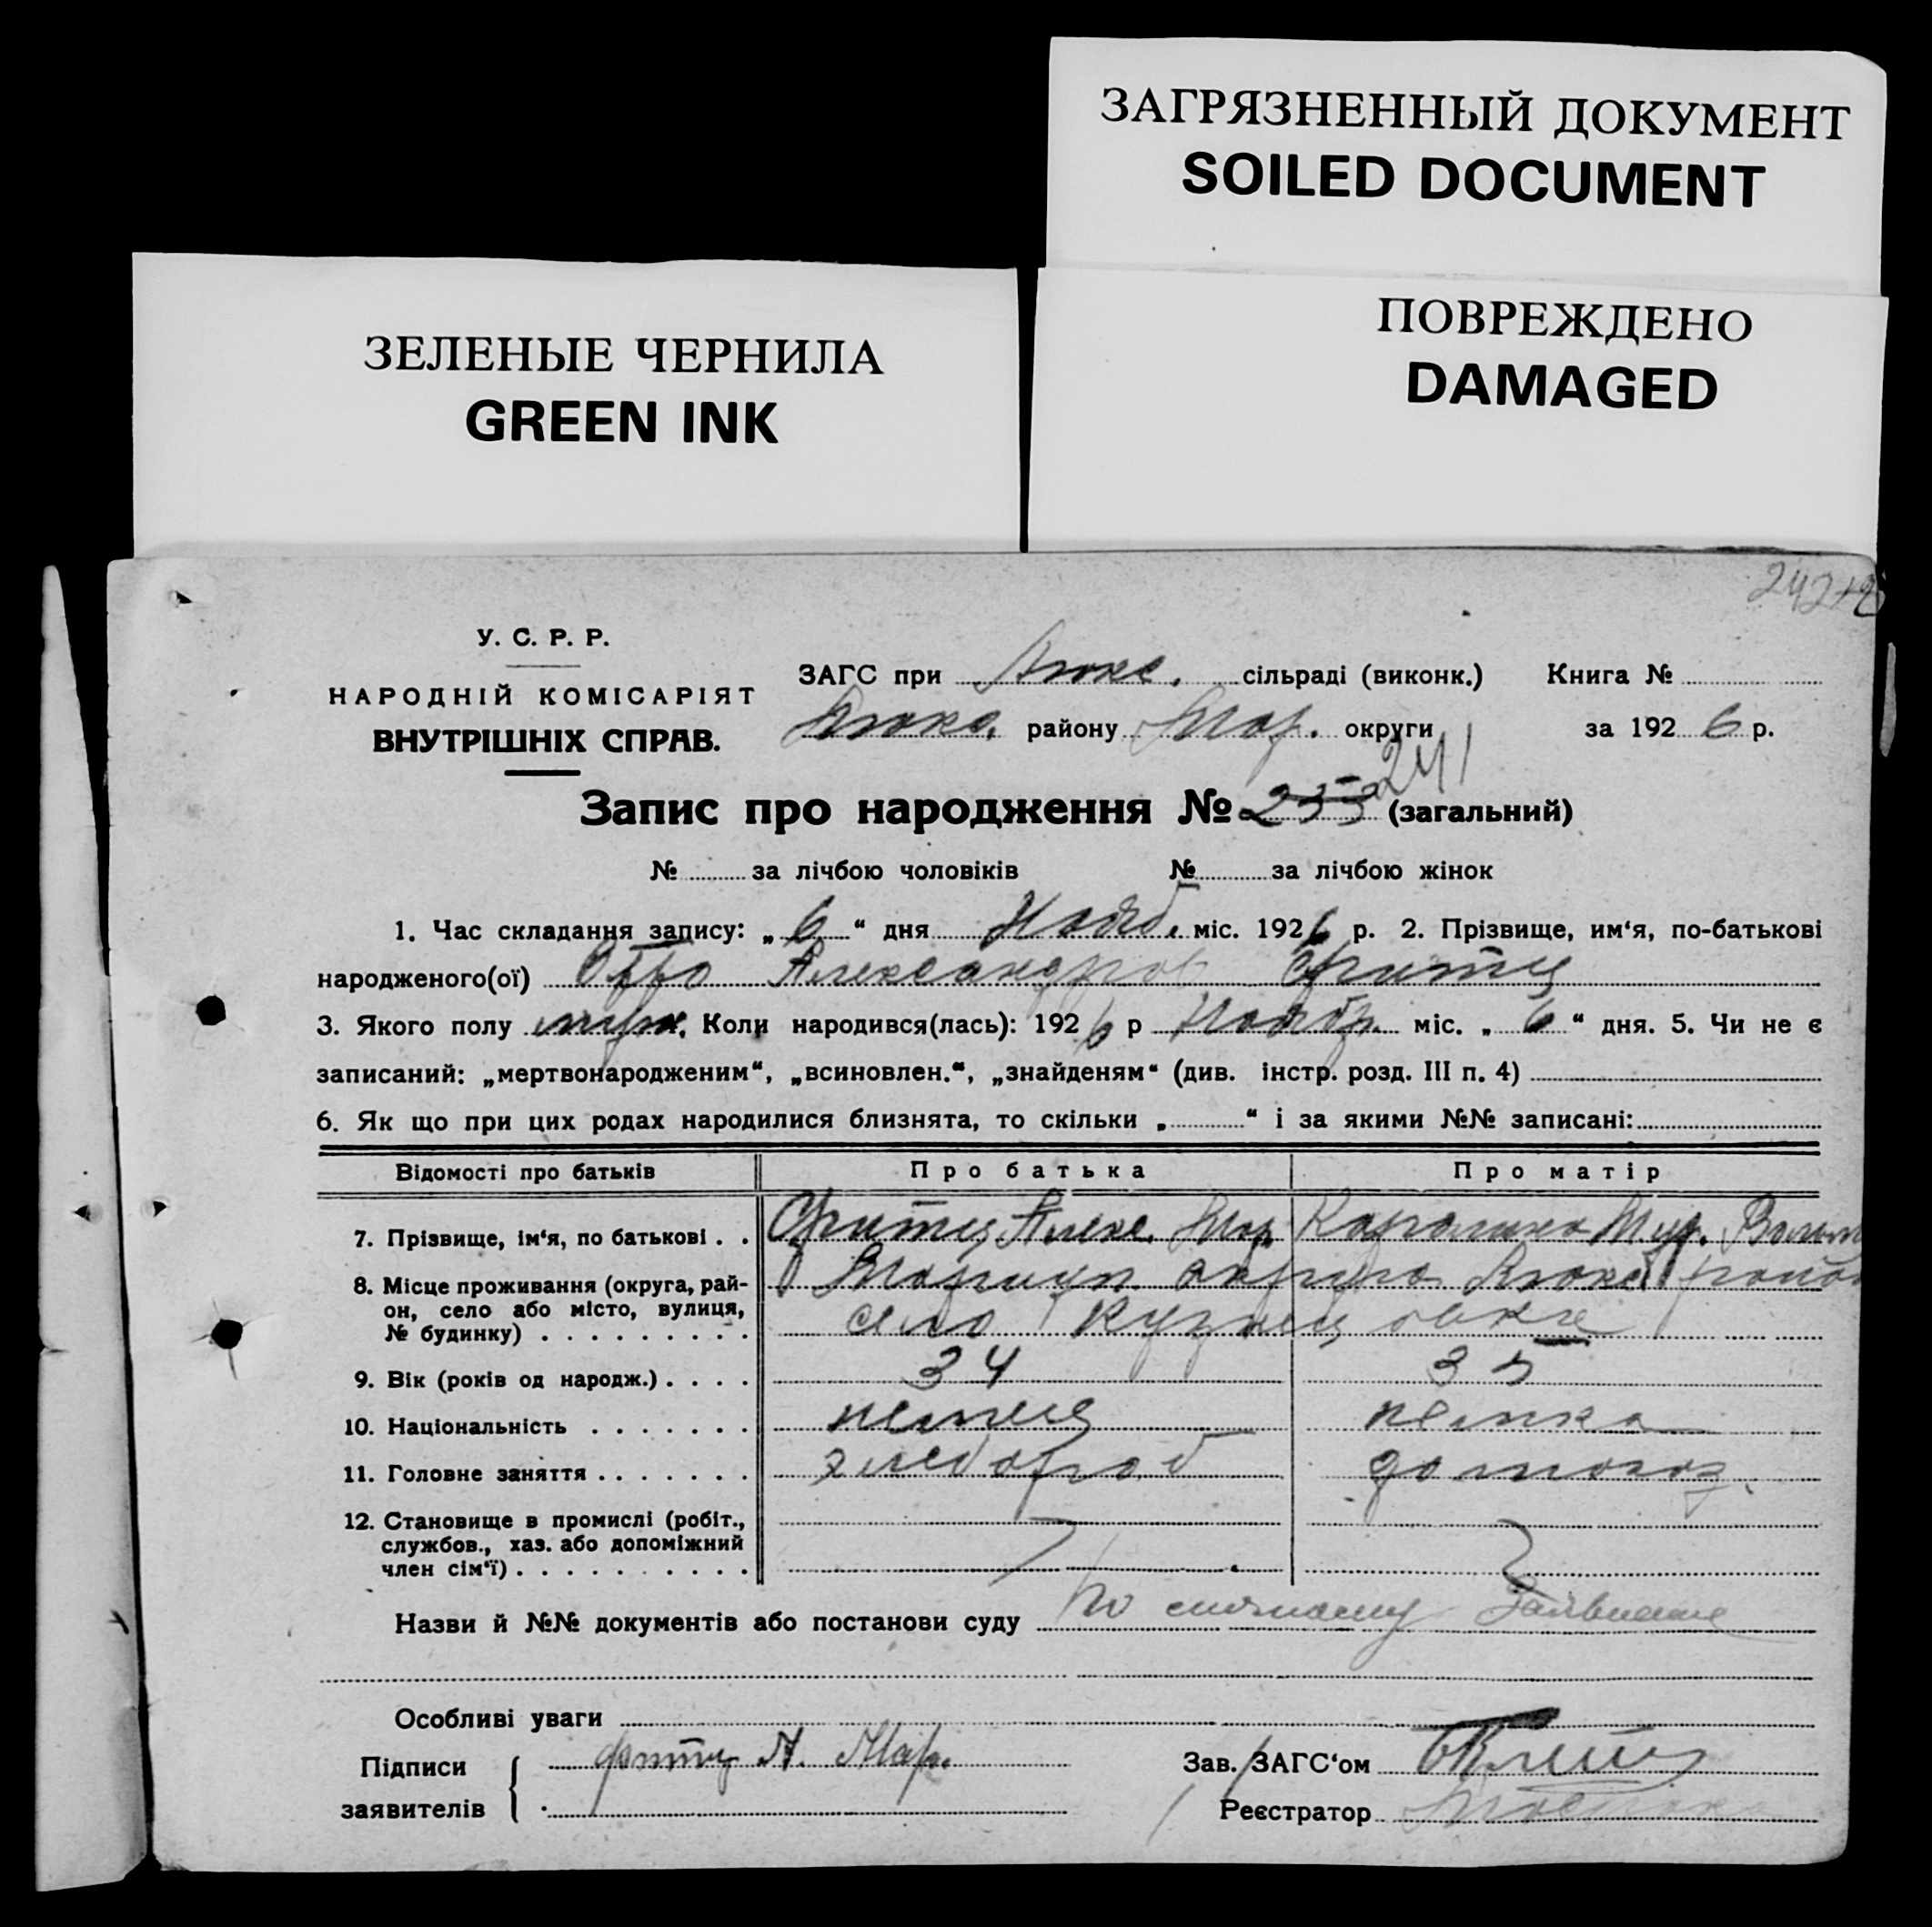 ЗАГРЯЗНЕННЫЙ ДОКУМЕНТ
SOILED DOCUMENT
ЗЕЛЕНЫЕ ЧЕРНИЛА
GREEN INK
ПОВРЕЖДЕНО
DAMAGED
У. С. Р. Р.
НАРОДНІЙ КОМІСАРІЯТ
ВНУТРІШНІХ СПРАВ.
ЗАГС при Люкс. сільраді (виконк.) Книга №
Люкс. району Мар. округи за 1926 р.
241
Запис про народження № 233 (загальний)
№ за лічбою чоловіків № за лічбою жінок
1. Час складання запису: „6“ дня Нояб. міс. 1926 р. 2. Прізвище, им‘я, по-батькові
народженого(ої) Отто Александров Фритц
3. Якого полу муж. Коли народився(лась): 1926 р Нояб. міс. „6“ дня. 5. Чи не є
записаний: „мертвонародженим“, „всиновлен.“, „знайденям“ (див. інстр. розд. III п. 4)
6. Як що при цих родах народилися близнята, то скільки „ “ і за якими №№ записані:
Відомості про батьків Про батька Про матір
7. Прізвище, ім‘я, по батькові . . Фритц Алекс. Мар. Каролина
8. Місце проживання (округа, рай- Мариуп округа Люксб район
он, село або місто, вулиця, село Кузнецовка
№ будинку) . . . . . . . . .
9. Вік (років од народж.) . . . . 34 35
10. Національність . . . . . . . немец немка
11. Головне заняття . . . . . . . хлебороб домохоз.
12. Становище в промислі (робіт.,
службов., хаз. або допоміжний
член сім‘ї) . . . . . . . . . .
Назви й №№ документів або постанови суду По личному Заявление
Особливі уваги
Підписи фритц А. Мар. Зав. ЗАГС‘ом
заявителів Реєстратор